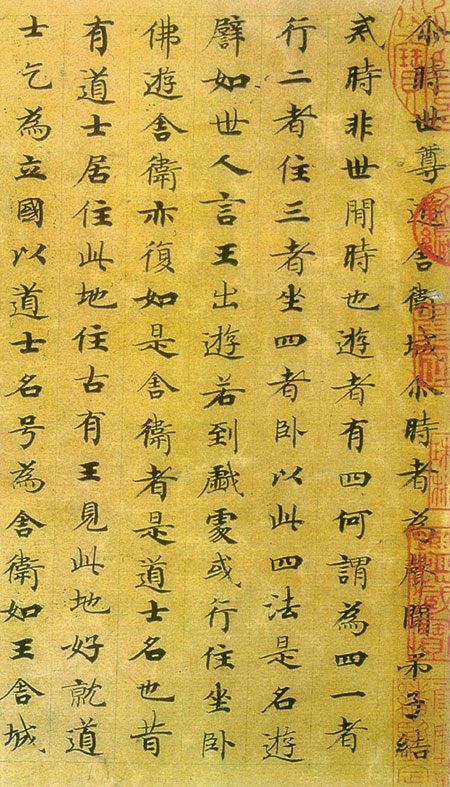 尒時世尊遊舍衛城尒時者為聲聞弟子結
戒時非世閒時也遊者有四何謂為四一者
行二者住三者坐四者卧以此四法是名遊
譬如世人言王出遊若到戲處或行住坐卧
佛遊舍衛亦復如是舍衛者是道士名也昔
有道士居住此地住古有王見此地好就道
士乞為立國以道士名号為舍衛如王舍城